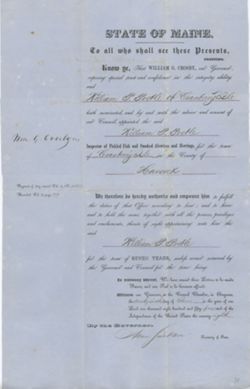 STATE OF MAINE.
To all who shall see these Presents,
Know ye, That WILLIAM G. CROSBY, our Governor,
reposing special trust and confidence in the integrity, ability and
William P. Preble of Cranberry Isle
hath nominated, and by and with the advice and consent of
our Council appointed the said
William P. Preble
Inspector of Pickled Fish and Smoked Alewives and Herrings, for the town
of Cranberry Isle in the County of
Hancock
Wm. G. Crosby
We therefore do hereby authorize and empower him to fulfil
the duties of that Office according to law; and to have
and to hold the same together with all the powers, privileges
and emoluments thereto of right appertaining unto him the
said
William P. Preble
for the term of SEVEN YEARS, unless sooner removed by
the Governor and Council for the time being.
In testimony whereof, We have caused these Letters to be made
Patent, and our Seal to be hereunto affixed.
Witness our Governor, at the Council Chamber, in Augusta,
the day of in the year of our
Lord one thousand eight hundred and fifty and of the
Independence of the United States the seventy
By the Governor.
Secretary of State.